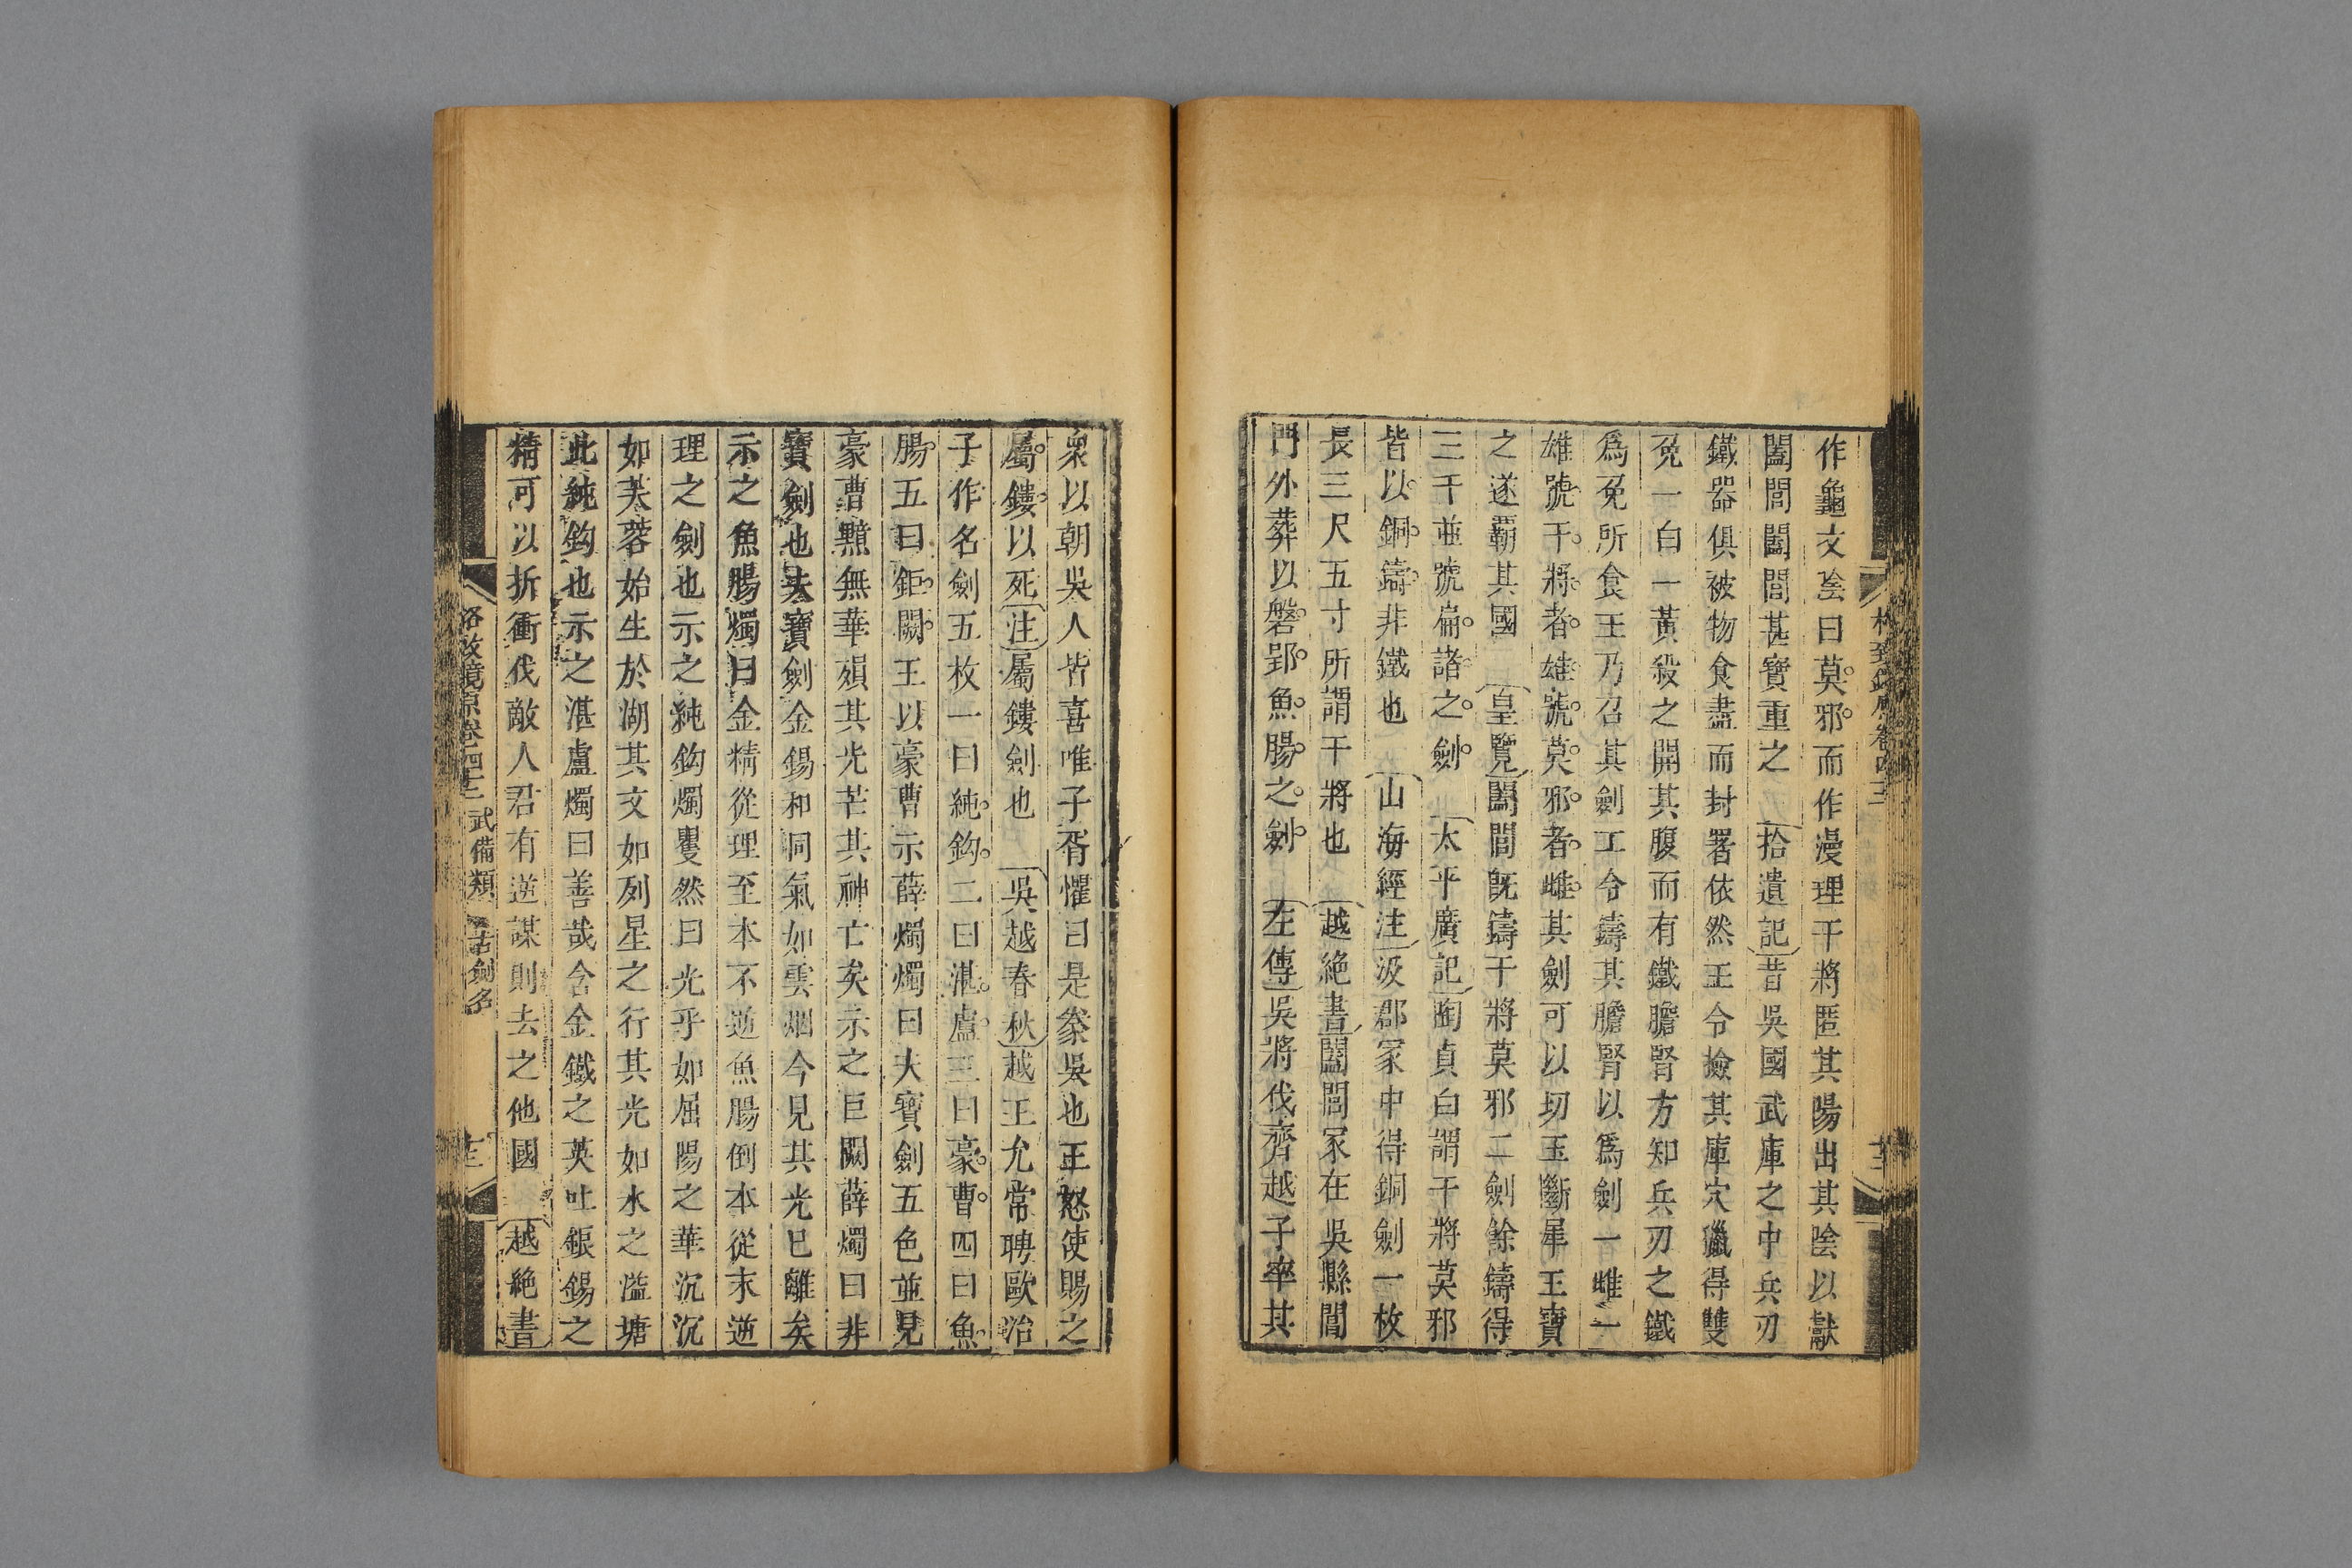 作龜文陰曰莫邪而作漫理干將匿其陽出其陰以獻
闔閭闔閭甚寶重之 拾遺記昔吳國武庫之中兵刃
鐵器俱被物食盡而封署依然王令撿其庫穴獵得雙
兔一白一黃殺之開其腹而有鐵膽腎方知兵刃之鐵
爲兔所食王乃召其劍工令鑄其膽腎以爲劍一雌一
雄號干將者雄號莫邪者雌其劍可以切玉斷犀王寶
之遂霸其國 皇覽闔閭旣鑄干將莫邪二劍餘鑄得
三千並號扁諸之劍 太平廣記陶貞白謂干將莫邪
皆以銅鑄非鐵也 山海經注汲郡冢中得銅劍一枚
長三尺五寸所謂干將也 越絶書闔閭冢在吳縣閶
門外葬以磐郢魚腸之劍 左傳吳將伐齊越子率其
衆以朝吳人皆喜唯子胥懼曰是豢吳也王怒使賜之
屬鏤以死注屬鏤劍也 吳越春秋越王允常聘歐冶
子作名劍五枚一曰純鈎二曰湛盧三曰豪曹四曰魚
腸五曰鉅闕王以豪曹示薛燭燭曰夫寶劍五色並見
豪曹黮無華殞其光芒其神亡矣示之巨闕薛燭曰非
寶劍也夫寶劍金錫和洞氣如雲烟今見其光已離矣
示之魚腸燭曰金精從理至本不逆魚腸倒本從末逆
理之劍也示之純鈎燭矍然曰光乎如屈陽之華沉沉
如芙蓉始生於湖其文如列星之行其光如水之溢塘
此純鈎也示之湛盧燭曰善哉含金鐵之英吐銀錫之
精可以折衝伐敵人君有逆謀則去之他國 越絶書
格致鏡原卷四十二 武備類 古劍名 十二